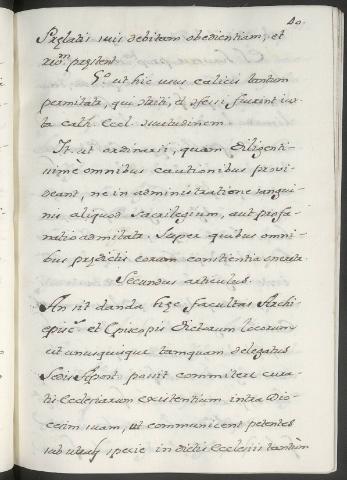 40.
Prælatis suis debitam obedientiam, et
præstent
5.º ut hic usus calicis tantum
permitatr, qui , et fuerint iux-
ta cath. Eccl. consuetudinem.
It. ut ordinarii, quam diligenti-
ssimè omnibus cautionibus provi-
deant, ne in administratione sangui-
nis aliquod sacrilegium, aut profa-
natio admitatr. Super quibus omni-
bus prędictis eorum conscientia
Secundus articulus.
An sit danda hęc facultas Archi-
epis. et Episcopis dictarum locorum
ut unusquisque tamquam delegatus
Sedis Apost. possit commitere cura-
tis Ecclesiarum existentium intra Dio-
cesim suam, ut communicent petentes
sub utraq; specie in dictis Ecclesiis tantùm